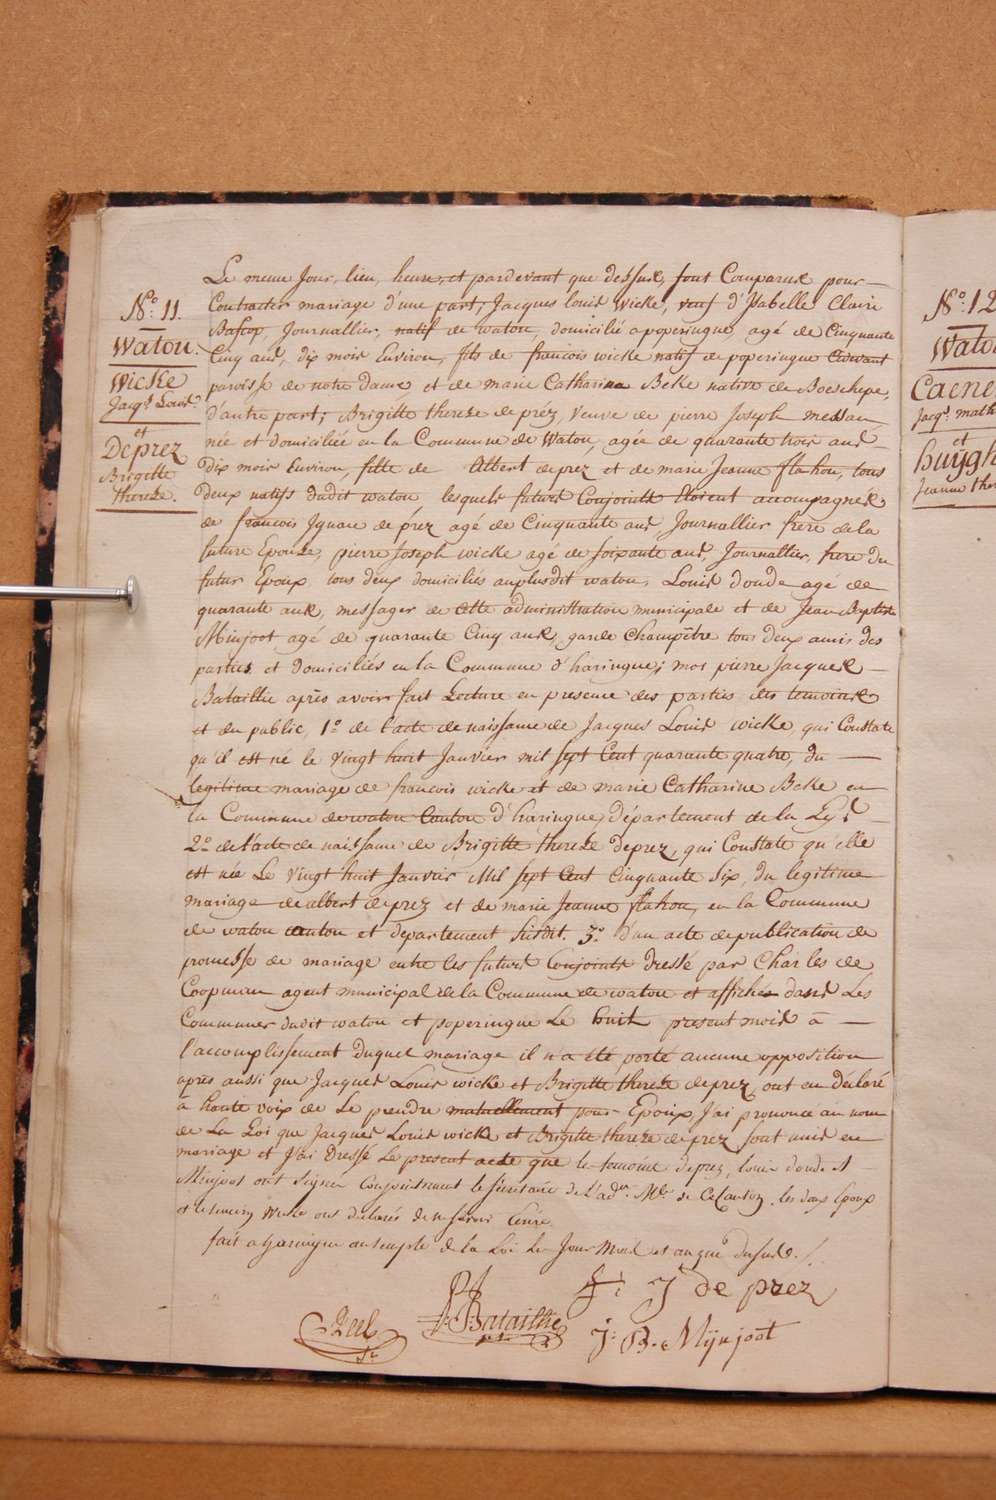 N.º 11.
Watou.
Wicke
Jacqs Louis.
et
Deprez
Brigitte
therese.
Le meme Jour, lieu, heure, et pardevant que dessus, sont Comparus pour
Contracter mariage d'une part; Jacques louis Wicke, veuf d'Isabelle Claire
Bascop, Journallier, natif de watou, domicilié a poperingue, agé de Cinquante
Cinq ans, dix mois Environ, fils de francois wicke natif de poperingue Cidevant
paroisse de notre dame, et de marie Catharina Beke native de Boeschepe,
d'autre part; Brigitte therese de préz, veuve de pierre Joseph messean
née et domiciliée en la Commune de Watou, agée de quarante trois ans
dix mois Environ, fille de Albert deprez et de marie Jeanne flahou, tous
deux natifs dudit watou, lesquels futurs Conjoints Etoient accompagnés
de francois Ignace de prez agé de Cinquante ans, Journallier frere de la
future Epouse, pierre Joseph wicke agé de soixante ans, Journallier, frere du
futur Epoux, tous deux domiciliés auplusdit watou, Louis donde agé de
quarante ans, messager de Cette administration municipale et de Jean Baptiste
Minjoot agé de quarante Cinq ans, garde Champêtre tous deux amis des
parties et domiciliés en la Commune d'haringue; moi pierre Jacques
Bataillie après avoir fait Lecture en presence des parties des temoins
et du public, 1.º de l'acte de naissance de Jacques Louis wicke, qui Constate
qu'il est né le vingt huit Janvier mil sept Cent quarante quatre, du
legitime mariage de francois wicke et de marie Catharine Beke en
la Commune de watou Canton d'haringue, département de la Lys
2.º de l'acte de naissance de Brigitte therese deprez, qui Constate qu'elle
est née Le vingt huit Janvier Mil sept Cent Cinquante Six, du legitime
mariage de albert deprez et de marie Jeanne flahou, en la Commune
de watou canton et departement susdit. 3.º d'un acte de publication de
promesse de mariage entre les futurs Conjoints dressé par Charles de
Coopman agent municipal de la Commune de watou et affichés dans Les
Communes dudit watou et poperingue Le huit present mois à
l'accomplissement duquel mariage il n'a été porté aucune opposition
après aussi que Jacques Louis wicke et Brigitte therese deprez ont en déclaré
à haute voix de Se prendre mutuellement pour Epoux, J'ai prononcé au nom
de La Loi que Jacques Louis wicke et Brigitte therese deprez sont unis en
mariage et J'ai Dressé Le present acte que le temoins deprez, louis donde et
Minjoot ont Signer Conjointement le secretaire de L'adon. Mle. de Ce Canton, les deux Epoux
et le temoin Wicke ons declarés de ne savoir Ecrire
fait a haringue au temple de la Loi Le Jour Mois et an que dessus
f: J de prez
P: J: Bataillie
J: B: Mijnjoot
N.º 12
Watou
Caene
Jacqs. math
et
huÿgh
Jeanne ther